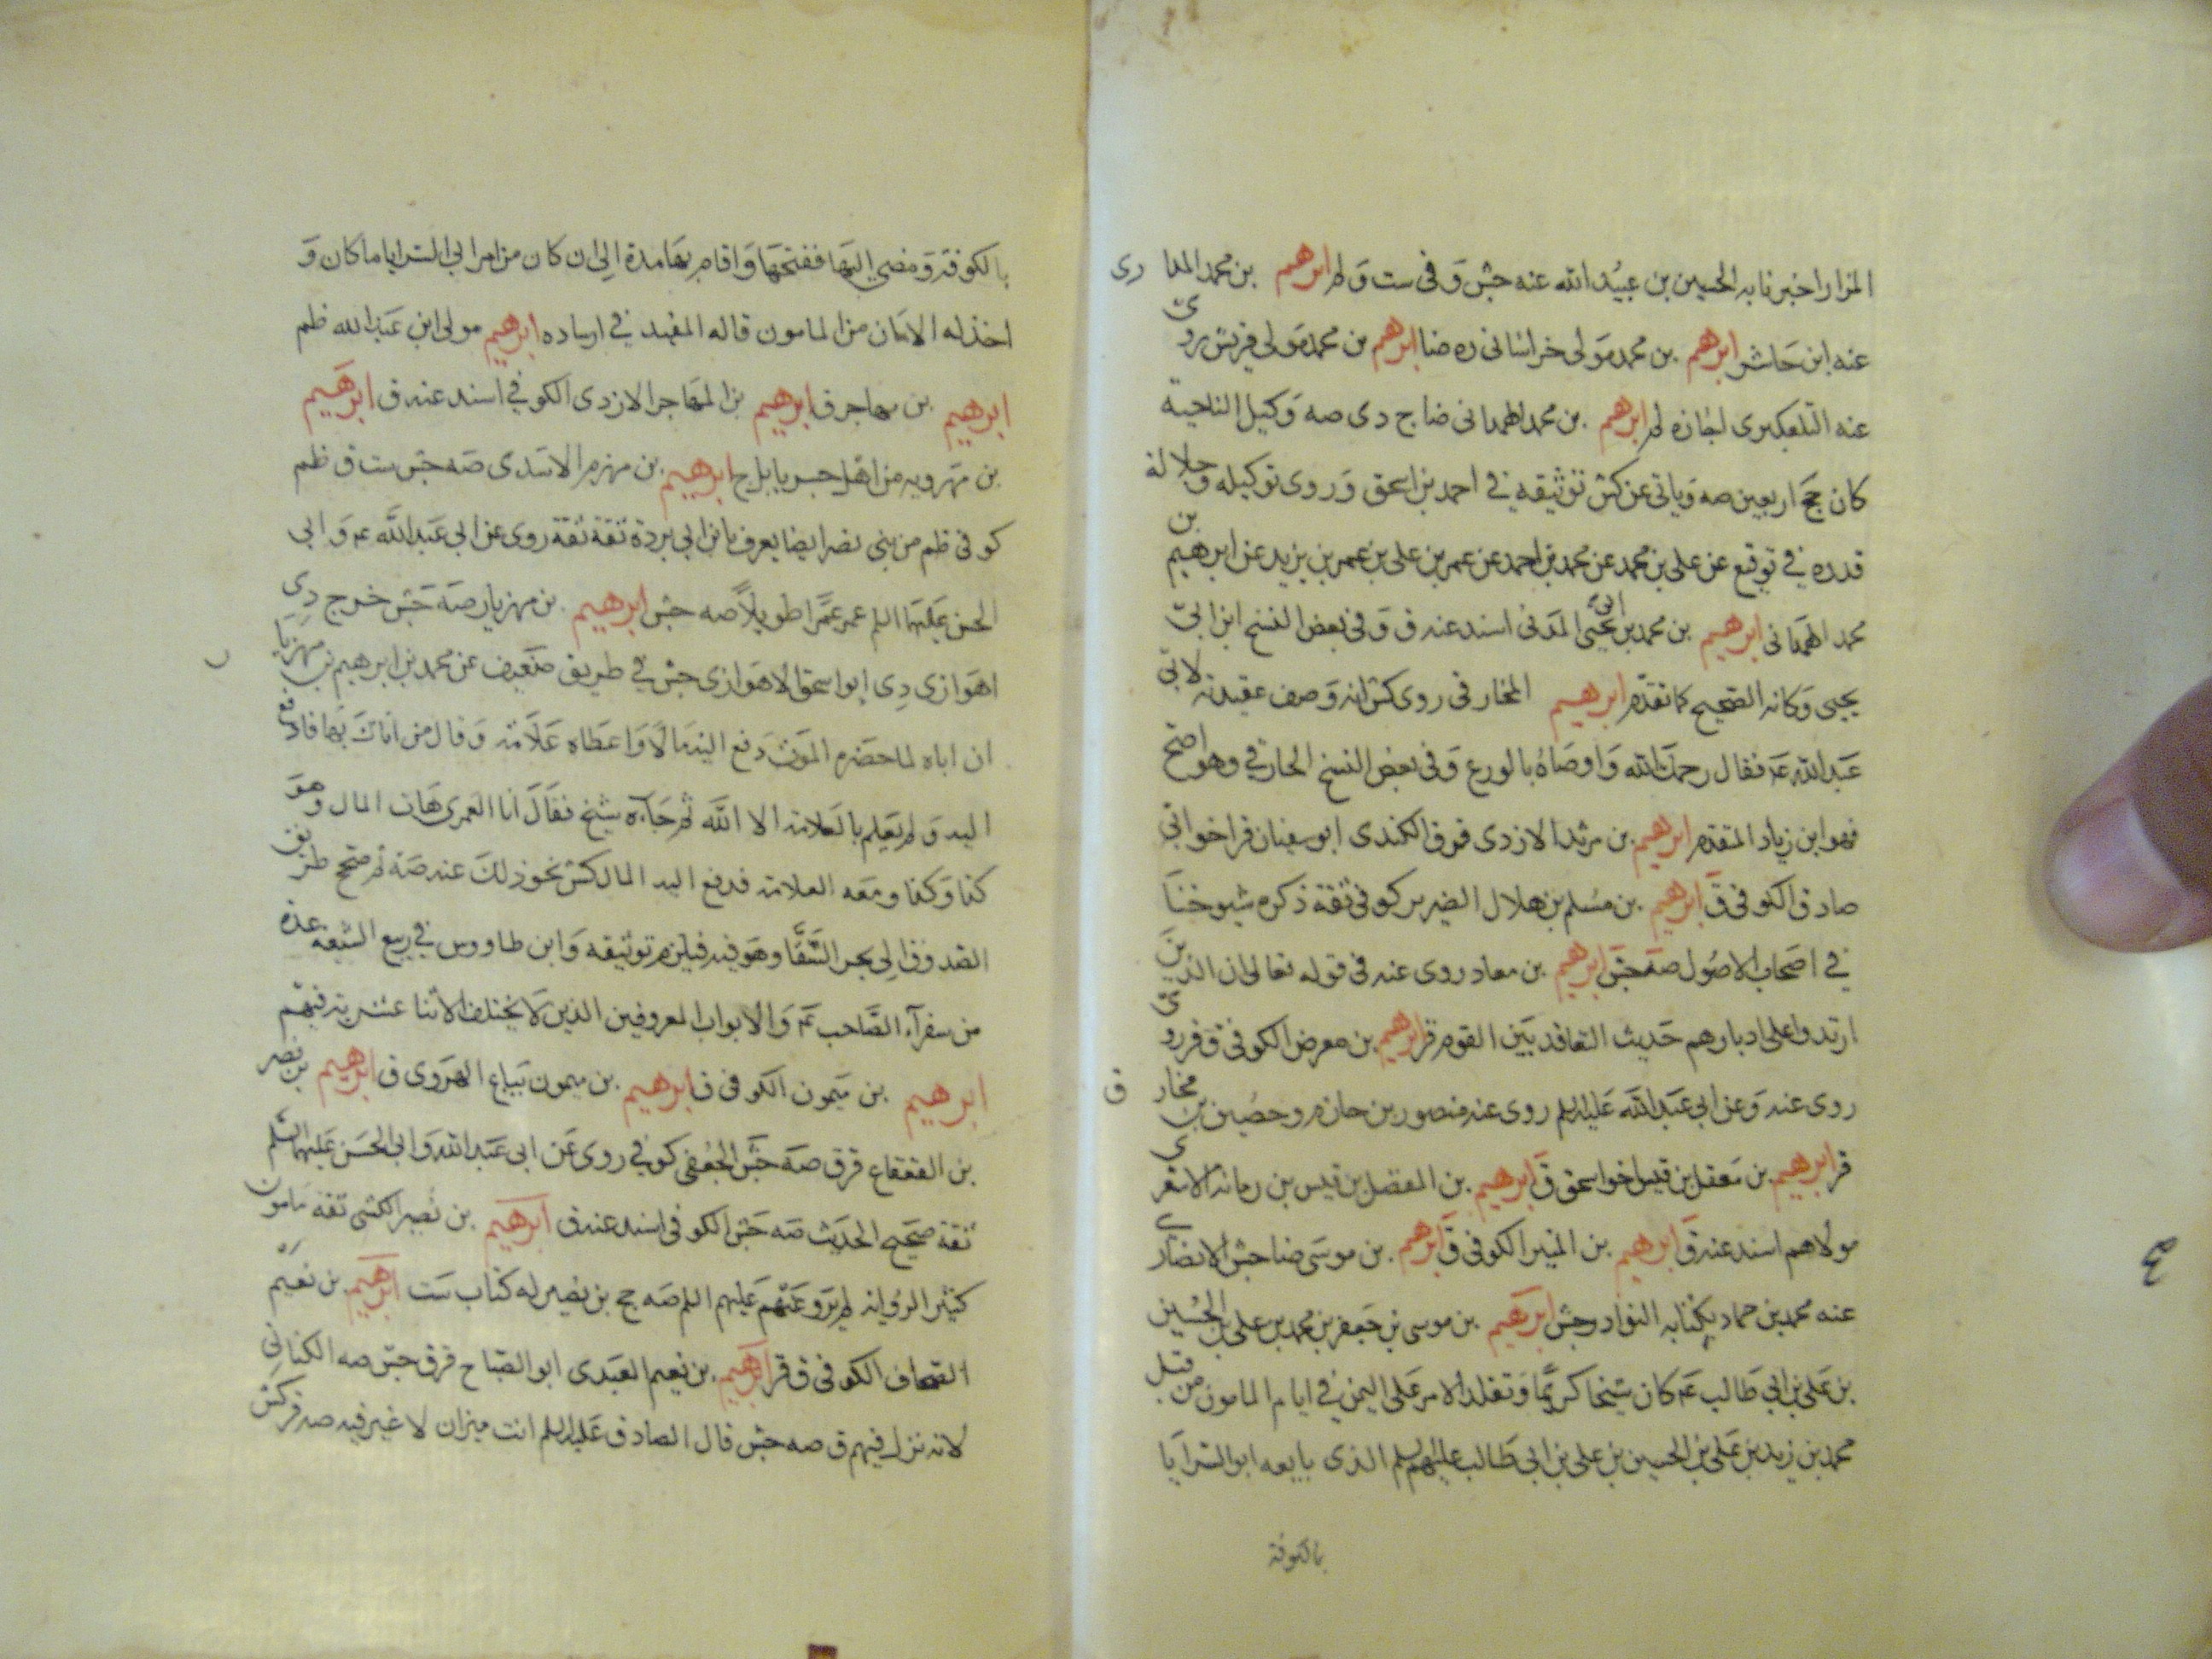 المزار اخبرنا به الحسين بن عبيد الله عنه جش وفى ست ولم ابرهيم بن محمد المدارى
عنه ابن حاشر ابرهيم بن محمد مولى خراسانى ده ضا ابرهيم بن محمد مولى قريش روى
عنه التلعكبرى اجازه لم ابرهيم بن محمد الهمدانى ضا ج دى صه وكيل الناحية
كان حج اربعين صه وياتى عن كش توثيقه في احمد بن اسحق وروى توكيله وجلالة
قدره في توقيع عن على بن محمد عن محمد بن احمد عن عمر بن على بن عمر بن يزيد عن ابرهيم بن
محمد الهمدانى ابرهيم بن محمد بن ابى يحيى المدنى اسند عنه ق وفى بعض النسخ ابن ابى
يحيى وكانه الصحيح كما تقدم ابرهيم المخارقى روى كش انه وصف عقيدته لابى
عبد الله عم فقال رحمك الله واوصاه بالورع وفى بعض النسخ الحارثي وهو اصح
فهو ابن زياد المتقدم ابرهيم بن مرثد الازدى قر ق الكندى ابو سفيان قر اخو ابى
صادق الكوفى ق ابرهيم بن مسلم بن هلال الضرير كوفى ثقة ذكره شيوخنا
في اصحاب الاصول صه جش ابرهيم بن معاد روى عنه فى قوله تعالى ان الذين
ارتدوا على ادبارهم حديث التعاقد بين القوم قر ابرهيم بن معرض الكوفى ق قر روى
روى عنه وعن ابى عبد الله عليه السلم روى عنه منصور بن حازم وحصين بن مخارق
قر ابرهيم بن معقل بن قيس اخو اسحق ق ابرهيم بن المفضل بن قيس بن رمانه الاشعرى
مولاهم اسند عنه ق ابرهيم بن المنير الكوفى ق ابرهيم بن موسى ضا جش الانصارى
عنه محمد بن حماد بكتابه النوادر جش ابرهيم بن موسى بن جعفر بن محمد بن على بن الحسين
بن على بن ابي طالب عم كان شيخا كريما وتقلد الامر على اليمن في ايام المامون من قبل
محمد بن زيد بن على بن الحسين بن على بن ابى طالب عليهم السلم الذى بايعه ابو السرايا
بالكوفة
٤
بالكوفة ومضى اليها ففتحها واقام بها مدة الى ان كان من امر ابي السرايا ما كان و
اخذ له الامان من المامون قاله المفيد في ارساده ابرهيم مولى ابن عبد الله ظم
ابرهيم بن مهاجر ق ابرهيم بن المهاجر الازدى الكوفي اسند عنه ق ابرهيم
بن مهرويه من اهل جسر بابل ج ابرهيم بن مهزم الاسدى صه جش ست ق ظم
كوفى ظم من بنى نصر ايضا يعرف بابن ابي بردة ثقة ثقة روى عن ابى عبد الله عم وابى
الحسن عليهما السلم عمر عمرا طويلا صه جش ابرهيم بن مهزيار صه جش خرج دى
اهوازى دى ابو اسحق الاهوازى جش في طريق ضعيف عن محمد بن ابرهيم بن مهزيار
ان اباه لما حضره الموت دفع اليه مالا واعطاه علامة وقال من اتاك بها فادفع
اليه ولم يعلم بالعلامه الا الله ثم جاءه شيخ فقال انا العمرى هات المال وهو
كذا وكذا ومعه العلامه فدفع اليه المال كش نحو ذلك عنه صه ثم صحح طريق
الصدوق الى بحر السقا وهو فيه فيلزم توثيقه وابن طاووس في ربيع الشيعه عده
من سفرآء الصاحب عم والابواب المعروفين الذين لا يختلف الاثنا عشريه فيهم
ابرهيم بن ميمون الكوفى ق ابرهيم بن ميمون بياع الهروى ق ابرهيم بن نصر
بن القعقاع قر ق صه جش الجعفى كوفي روى عن ابى عبد الله وابى الحسن عليهما السلم
ثقة صحيح الحديث صه جش الكوفى اسند عنه ق ابرهيم بن نصير الكشى ثقه مامون
كثير الرواية لم يرو عنهم عليهم السلم صه جح بن نصير له كتاب ست ابرهيم بن نعيم
الصحاف الكوفى ق قر ابرهيم بن نعيم العبدى ابو الصباح قر ق جش صه الكنانى
لانه نزل فيهم ق صه جش قال الصادق عليه السلم انت ميزان لا غير فيه صه قر كش